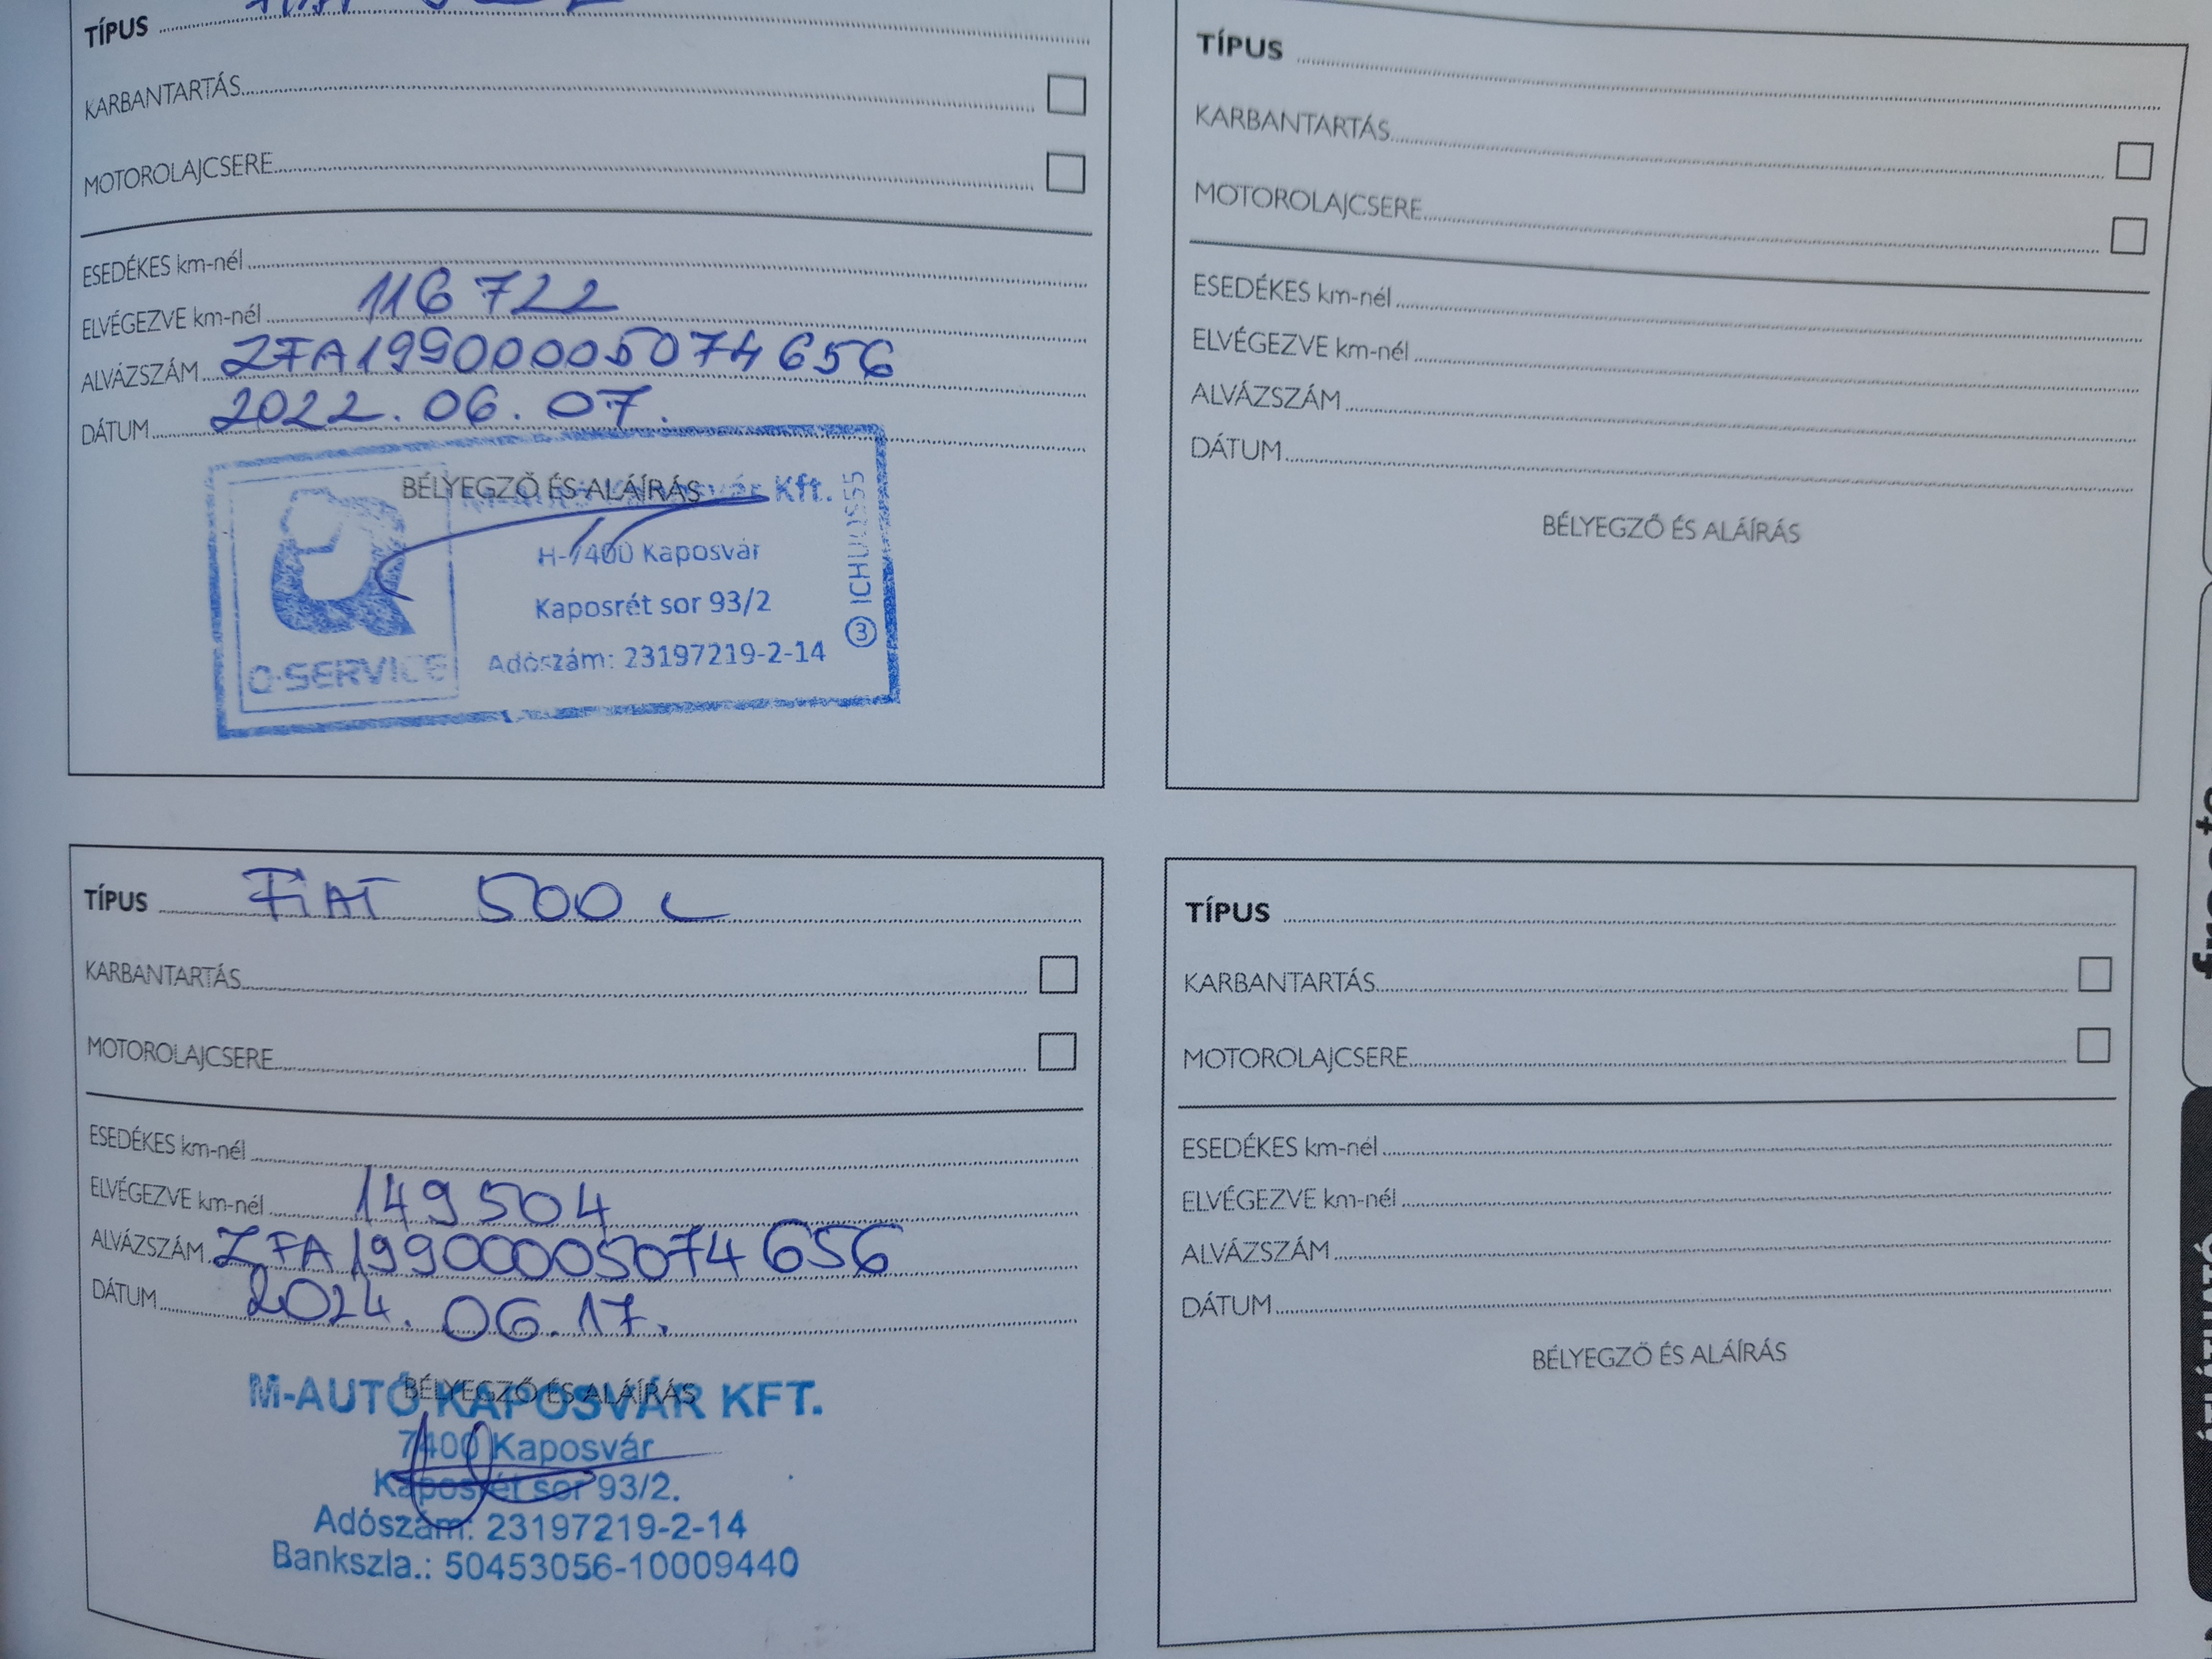 TÍPUS
KARBANTARTÁS
MOTOROLAJCSERE
ESEDÉKES km-nél
ELVÉGEZVE km-nél 116722
ALVÁZSZÁM ZFA19900005074656
DÁTUM 2022.06.07.
BÉLYEGZŐ ÉS ALÁÍRÁS
Kft.
H-7400 Kaposvár
Kaposrét sor 93/2
Adószám: 23197219-2-14
SERVICE
TÍPUS
KARBANTARTÁS
MOTOROLAJCSERE
ESEDÉKES km-nél
ELVÉGEZVE km-nél
ALVÁZSZÁM
DÁTUM
BÉLYEGZŐ ÉS ALÁÍRÁS
TÍPUS FiAT 500 L
KARBANTARTÁS
MOTOROLAJCSERE
ESEDÉKES km-nél
ELVÉGEZVE km-nél 149504
ALVÁZSZÁM ZFA19900005074656
DÁTUM 2024.06.17.
BÉLYEGZŐ ÉS ALÁÍRÁS
M-AUTÓ KAPOSVÁR KFT.
7400 Kaposvár
Kaposrét sor 93/2.
Adószám: 23197219-2-14
Bankszla.: 50453056-10009440
TÍPUS
KARBANTARTÁS
MOTOROLAJCSERE
ESEDÉKES km-nél
ELVÉGEZVE km-nél
ALVÁZSZÁM
DÁTUM
BÉLYEGZŐ ÉS ALÁÍRÁS